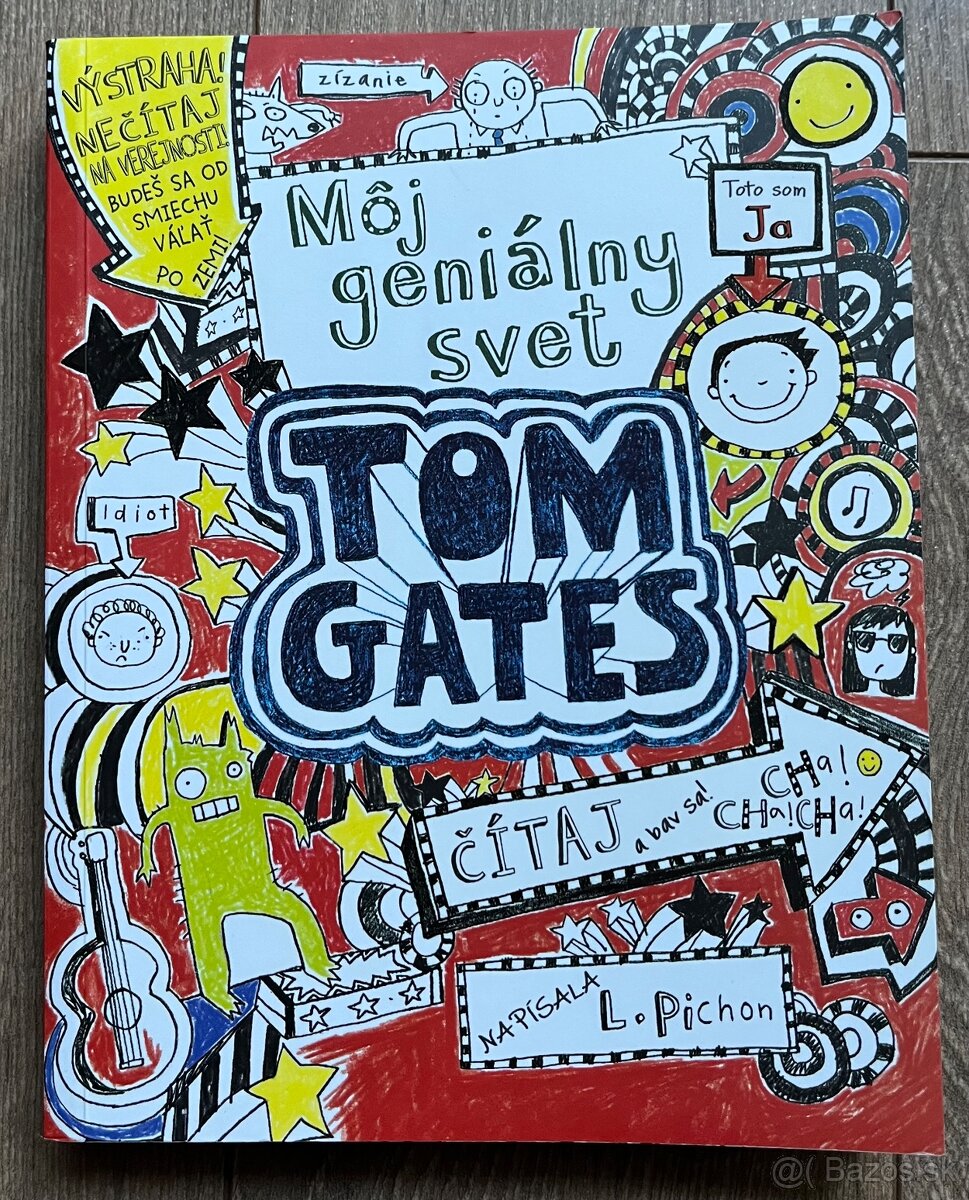 VÝSTRAHA!
NEČÍTAJ
NA VEREJNOSTI!
BUDEŠ SA OD
SMIECHU
VÁĽAŤ
PO ZEMI!
zízanie
Toto som
Ja
Môj
geniálny
svet
TOM
GATES
Idiot
ČÍTAJ a bav sa! CHa!
CHa!CHa!
NAPÍSALA L. Pichon
@( Bazos.sk